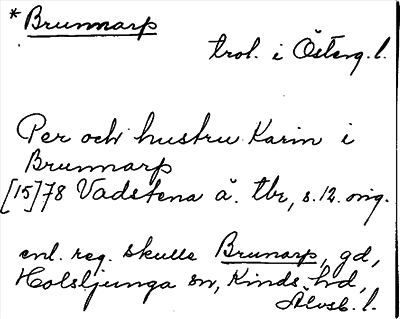 *Brunnarp
trol. i Österg. l.
Per och hustru Karin i
Brunnarp
[15]78 Vadstena ä. tbr, s. 12. orig.
enl. reg. skulle Brunarp, gd,
Holsljunga sn, Kinds hd,
Älvsb. l.